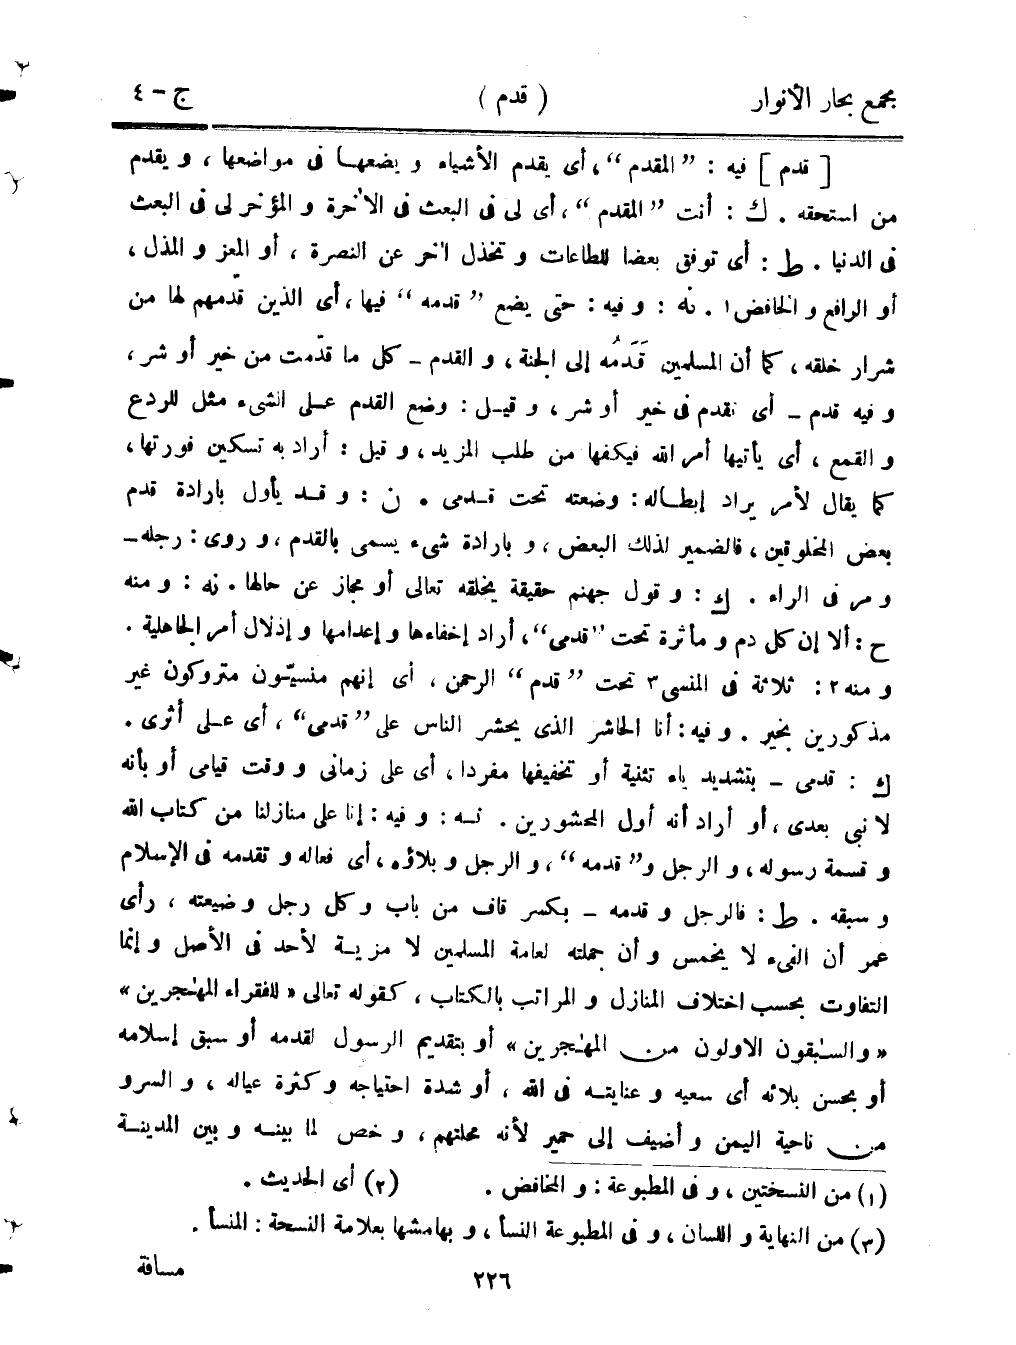 مجمع بحار الأنوار ( قدم ) ج - ٤
[ قدم ] فيه : ” المقدم “، أى يقدم الأشياء و يضعها فى مواضعها ، و يقدم
من استحقه . ك : أنت ” المقدم “، أى لى فى البعث فى الآخرة و المؤخر لى فى البعث
فى الدنيا . ط : أى توفق بعضا للطاعات و تخذل آخر عن النصرة ، أو المعز و المذل ،
أو الرافع و الخافض١ . نه : و فيه : حتى يضع ” قدمه “ فيها ، أى الذين قدّمهم لها من
شرار خلقه ، كما أن المسلمين قَدَمُه إلى الجنة ، و القدم ـ كل ما قدّمت من خير أو شر ،
و فيه قدم ـ أى تقدم فى خير أو شر ، و قيل : وضع القدم على الشىء مثل للردع
و القمع ، أى يأتيها أمر الله فيكفها من طلب المزيد ، و قيل : أراد به تسكين فورتها ،
كما يقال لأمر يراد إبطاله : وضعته تحت قدمى . ن : و قد يأول بارادة قدم
بعض المخلوقين ، فالضمير لذلك البعض ، و بارادة شىء يسمى بالقدم ، و روى : رجله ـ
و مر فى الراء . ك : و قول جهنم حقيقة يخلقه تعالى أو مجاز عن حالها . نه : و منه
ح : ألا إن كل دم و مأثرة تحت ” قدمى “، أراد إخفاءها و إعدامها و إذلال أمر الجاهلية .
و منه٢ : ثلاثة فى المنسى٣ تحت ” قدم “ الرحمن ، أى إنهم منسيّون متروكون غير
مذكورين بخير . و فيه : أنا الحاشر الذى يحشر الناس على ” قدمى “ ، أى على أثرى .
ك : قدمى ـ بتشديد ياء تثنية أو تخفيفها مفردا ، أى على زمانى و وقت قيامى أو بأنه
لا نبى بعدى ، أو أراد أنه أول المحشورين . نه : و فيه : إنا على منازلنا من كتاب الله
و قسمة رسوله ، و الرجل و ” قدمه “ ، و الرجل و بلاؤه ، أى فعاله و تقدمه فى الإسلام
و سبقه . ط : فالرجل و قدمه ـ بكسر قاف من باب و كل رجل و ضيعته ، رأى
عمر أن الفىء لا يخمس و أن جملته لعامة المسلمين لا مزية لأحد فى الأصل و إنما
التفاوت بحسب اختلاف المنازل و المراتب بالكتاب ، كقوله تعالى « للفقراء المهٰجرين »
« والسٰبقون الاولون من المهٰجرين » أو بتقديم الرسول لقدمه أو سبق إسلامه
أو بحسن بلائه أى سعيه و عنايته فى الله ، أو شدة احتياجه و كثرة عياله ، و السرو
من ناحية اليمن و أضيف إلى حمير لأنه محلتهم ، و خص لما بينه و بين المدينة
(١) من النسختين ، و فى المطبوعة : و المخافض . (٢) أى الحديث .
(٣) من النهاية و اللسان ، و فى المطبوعة النسأ ، و بهامشها بعلامة النسخة : المنسأ .
مسافة
٢٢٦